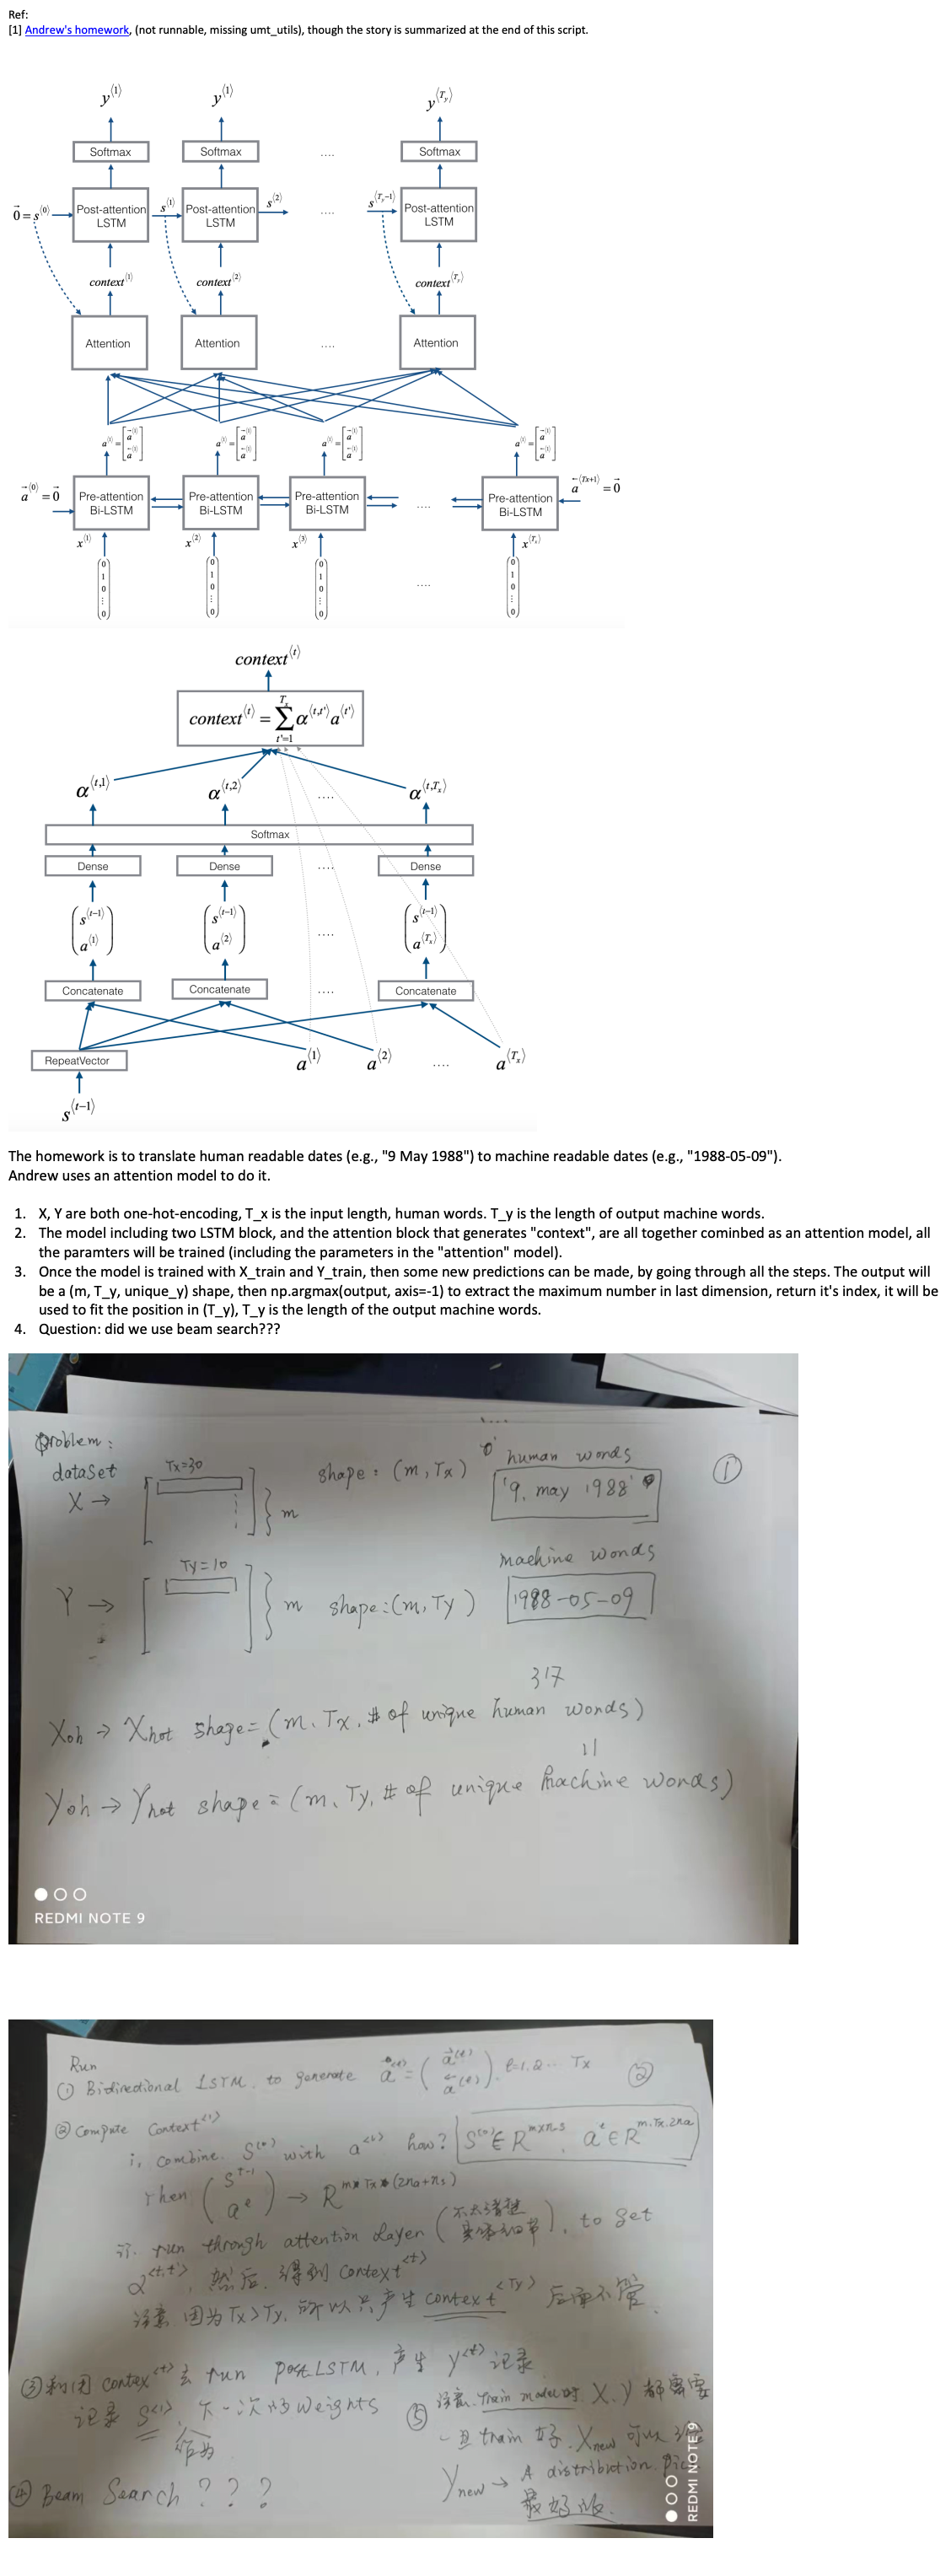 Ref:
[1] Andrew's homework, (not runnable, missing umt_utils), though the story is summarized at the end of this script.
y⟨1⟩ y⟨1⟩ y⟨T_y⟩
Softmax Softmax .... Softmax
0 = s⟨0⟩ Post-attention LSTM s⟨1⟩ Post-attention LSTM s⟨2⟩ .... s⟨T_y-1⟩ Post-attention LSTM
context⟨1⟩ context⟨2⟩ context⟨T_y⟩
Attention Attention .... Attention
a⟨0⟩ = 0 Pre-attention Bi-LSTM Pre-attention Bi-LSTM Pre-attention Bi-LSTM .... Pre-attention Bi-LSTM a⟨Tx+1⟩ = 0
x⟨1⟩ x⟨2⟩ x⟨3⟩ x⟨T_x⟩
0 1 0 ⋮ 0 0 1 0 ⋮ 0 0 1 0 ⋮ 0 .... 0 1 0 ⋮ 0
context⟨t⟩
context⟨t⟩ = ∑ t'=1 T_x α⟨t,t'⟩ a⟨t'⟩
α⟨t,1⟩ α⟨t,2⟩ .... α⟨t,T_x⟩
Softmax
Dense Dense .... Dense
s⟨t-1⟩ a⟨1⟩ s⟨t-1⟩ a⟨2⟩ .... s⟨t-1⟩ a⟨T_x⟩
Concatenate Concatenate .... Concatenate
RepeatVector a⟨1⟩ a⟨2⟩ .... a⟨T_x⟩
s⟨t-1⟩
The homework is to translate human readable dates (e.g., "9 May 1988") to machine readable dates (e.g., "1988-05-09").
Andrew uses an attention model to do it.
1. X, Y are both one-hot-encoding, T_x is the input length, human words. T_y is the length of output machine words.
2. The model including two LSTM block, and the attention block that generates "context", are all together cominbed as an attention model, all
the paramters will be trained (including the parameters in the "attention" model).
3. Once the model is trained with X_train and Y_train, then some new predictions can be made, by going through all the steps. The output will
be a (m, T_y, unique_y) shape, then np.argmax(output, axis=-1) to extract the maximum number in last dimension, return it's index, it will be
used to fit the position in (T_y), T_y is the length of the output machine words.
4. Question: did we use beam search???
problem:
dataset Tx=30 shape: (m, Tx) human words ①
X → m '9. may 1988'
Ty=10 machine words
Y → m shape: (m, Ty) 1988-05-09
317
Xoh → Xhot shape= (m, Tx, # of unique human words)
11
Yoh → Yhot shape = (m, Ty, # of unique machine words)
REDMI NOTE 9
Run
① Bidirectional LSTM. to generate a⟨t⟩ = (a⟨t⟩ a⟨t⟩), t=1,2... Tx ②
② Compute Context⟨1⟩
i, combine S⟨0⟩ with a⟨t⟩ how? S⟨0⟩ ∈ R^m×ns, a^t ∈ R^m,Tx,2na
Then (S^t-1 a^t) → R^m*Tx*(2na+ns)
ii. run through attention layer (不去清楚 实 细节), to get
α⟨t,t'⟩, 然后, 得到 Context⟨t⟩
注意 因为 Tx>Ty, 所以只产生 context⟨Ty⟩ 后面不管.
③ 利用 context⟨t⟩ 去 run post LSTM, 产生 y⟨t⟩ 记录
记录 S⟨1⟩, 作为 下一次的 weights
⑤ 注意. Train model时 X, Y 都需要
一旦 train 好. Xnew 可以
Ynew → A distribution. Pick
最好的.
④ Beam Search ? ? ?
REDMI NOTE 9